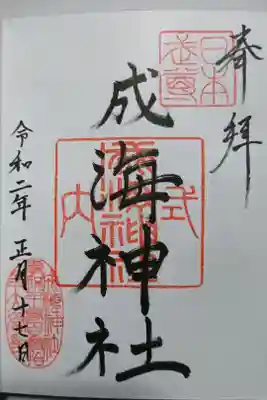 奉拝
日本武尊
成海神社
式内
令和二年 正月十七日